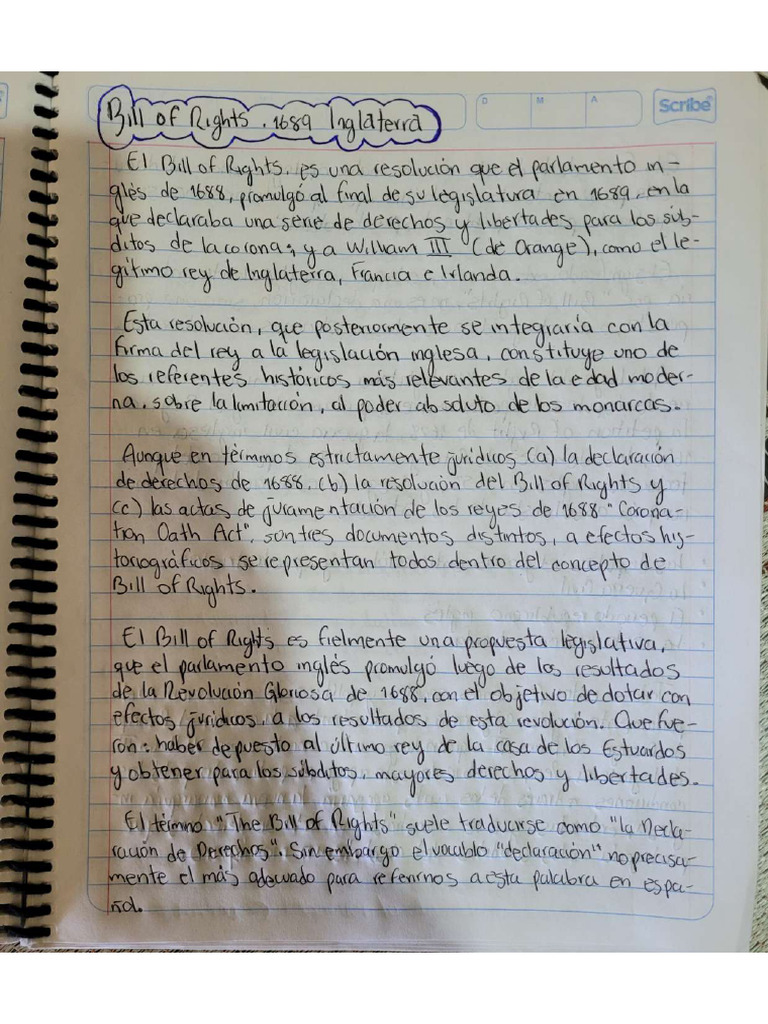 Bill of Rights. 1689 Inglaterra
D M A
Scribe
El Bill of Rights, es una resolución que el parlamento in-
glés de 1688, promulgó al final de su legislatura en 1689, en la
que declaraba una serie de derechos y libertades para los súb-
ditos de la corona; y a William III (de Orange), como el le-
gítimo rey de Inglaterra, Francia e Irlanda.
Esta resolución, que posteriormente se integraría con la
firma del rey a la legislación inglesa, constituye uno de
los referentes históricos más relevantes de la edad moder-
na, sobre la limitación, al poder absoluto de los monarcas.
Aunque en términos estrictamente jurídicos (a) la declaración
de derechos de 1688, (b) la resolución del Bill of Rights y
(c) las actas de juramentación de los reyes de 1688 "Corona-
tion Oath Act", son tres documentos distintos, a efectos his-
toriográficos se representan todos dentro del concepto de
Bill of Rights.
El Bill of Rights es fielmente una propuesta legislativa,
que el parlamento inglés promulgó luego de los resultados
de la Revolución Gloriosa de 1688, con el objetivo de dotar con
efectos jurídicos, a los resultados de esta revolución. Que fue-
ron: haber depuesto al último rey de la casa de los Estuardos
y obtener para los súbditos, mayores derechos y libertades.
El término "The Bill of Rights" suele traducirse como "la Decla-
ración de Derechos". Sin embargo el vocablo "declaración" no precisa-
mente el más adecuado para referirnos a esta palabra en espa-
ñol.